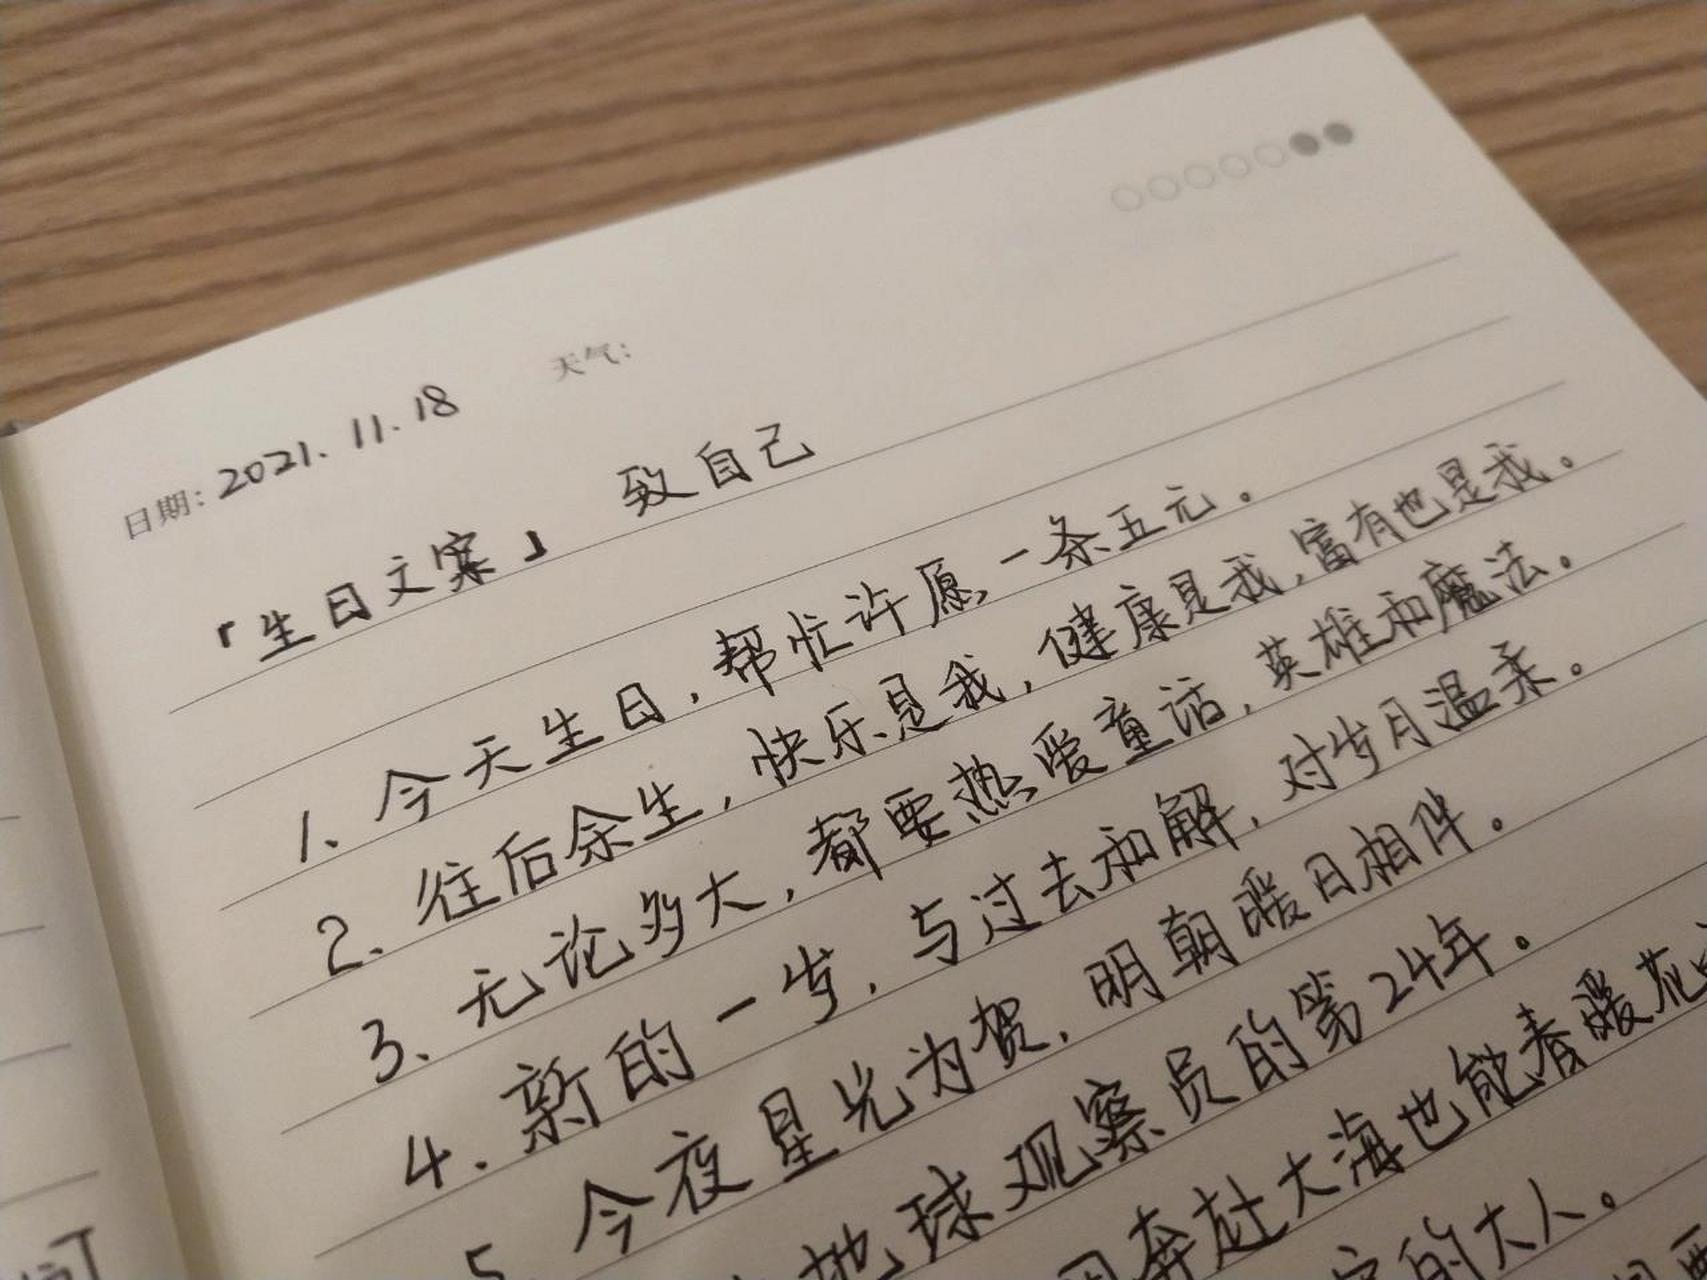 日期: 2021.11.18 天气:
「生日文案」 致自己
1. 今天生日,帮忙许愿一条五元。
2. 往后余生,快乐是我,健康是我,富有也是我。
3. 无论多大,都要热爱童话,英雄和魔法。
4. 新的一岁,与过去和解,对岁月温柔。
5 今夜星光为贺,明朝暖日相伴。
地球观察员的第24年。
奔赴大海也能春暖花
的大人。